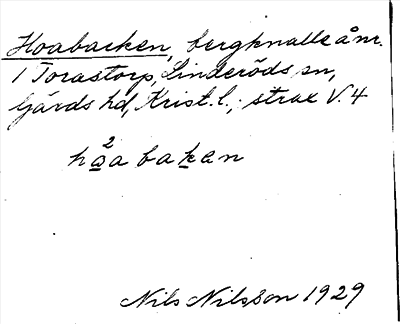 Hoabacken, bergknalle å nr.
1 Torastorp, Linderöds sn,
Gärds hd, Krist. l.; strax V. 4
h²a̲a bak̲en
Nils Nilsson 1929